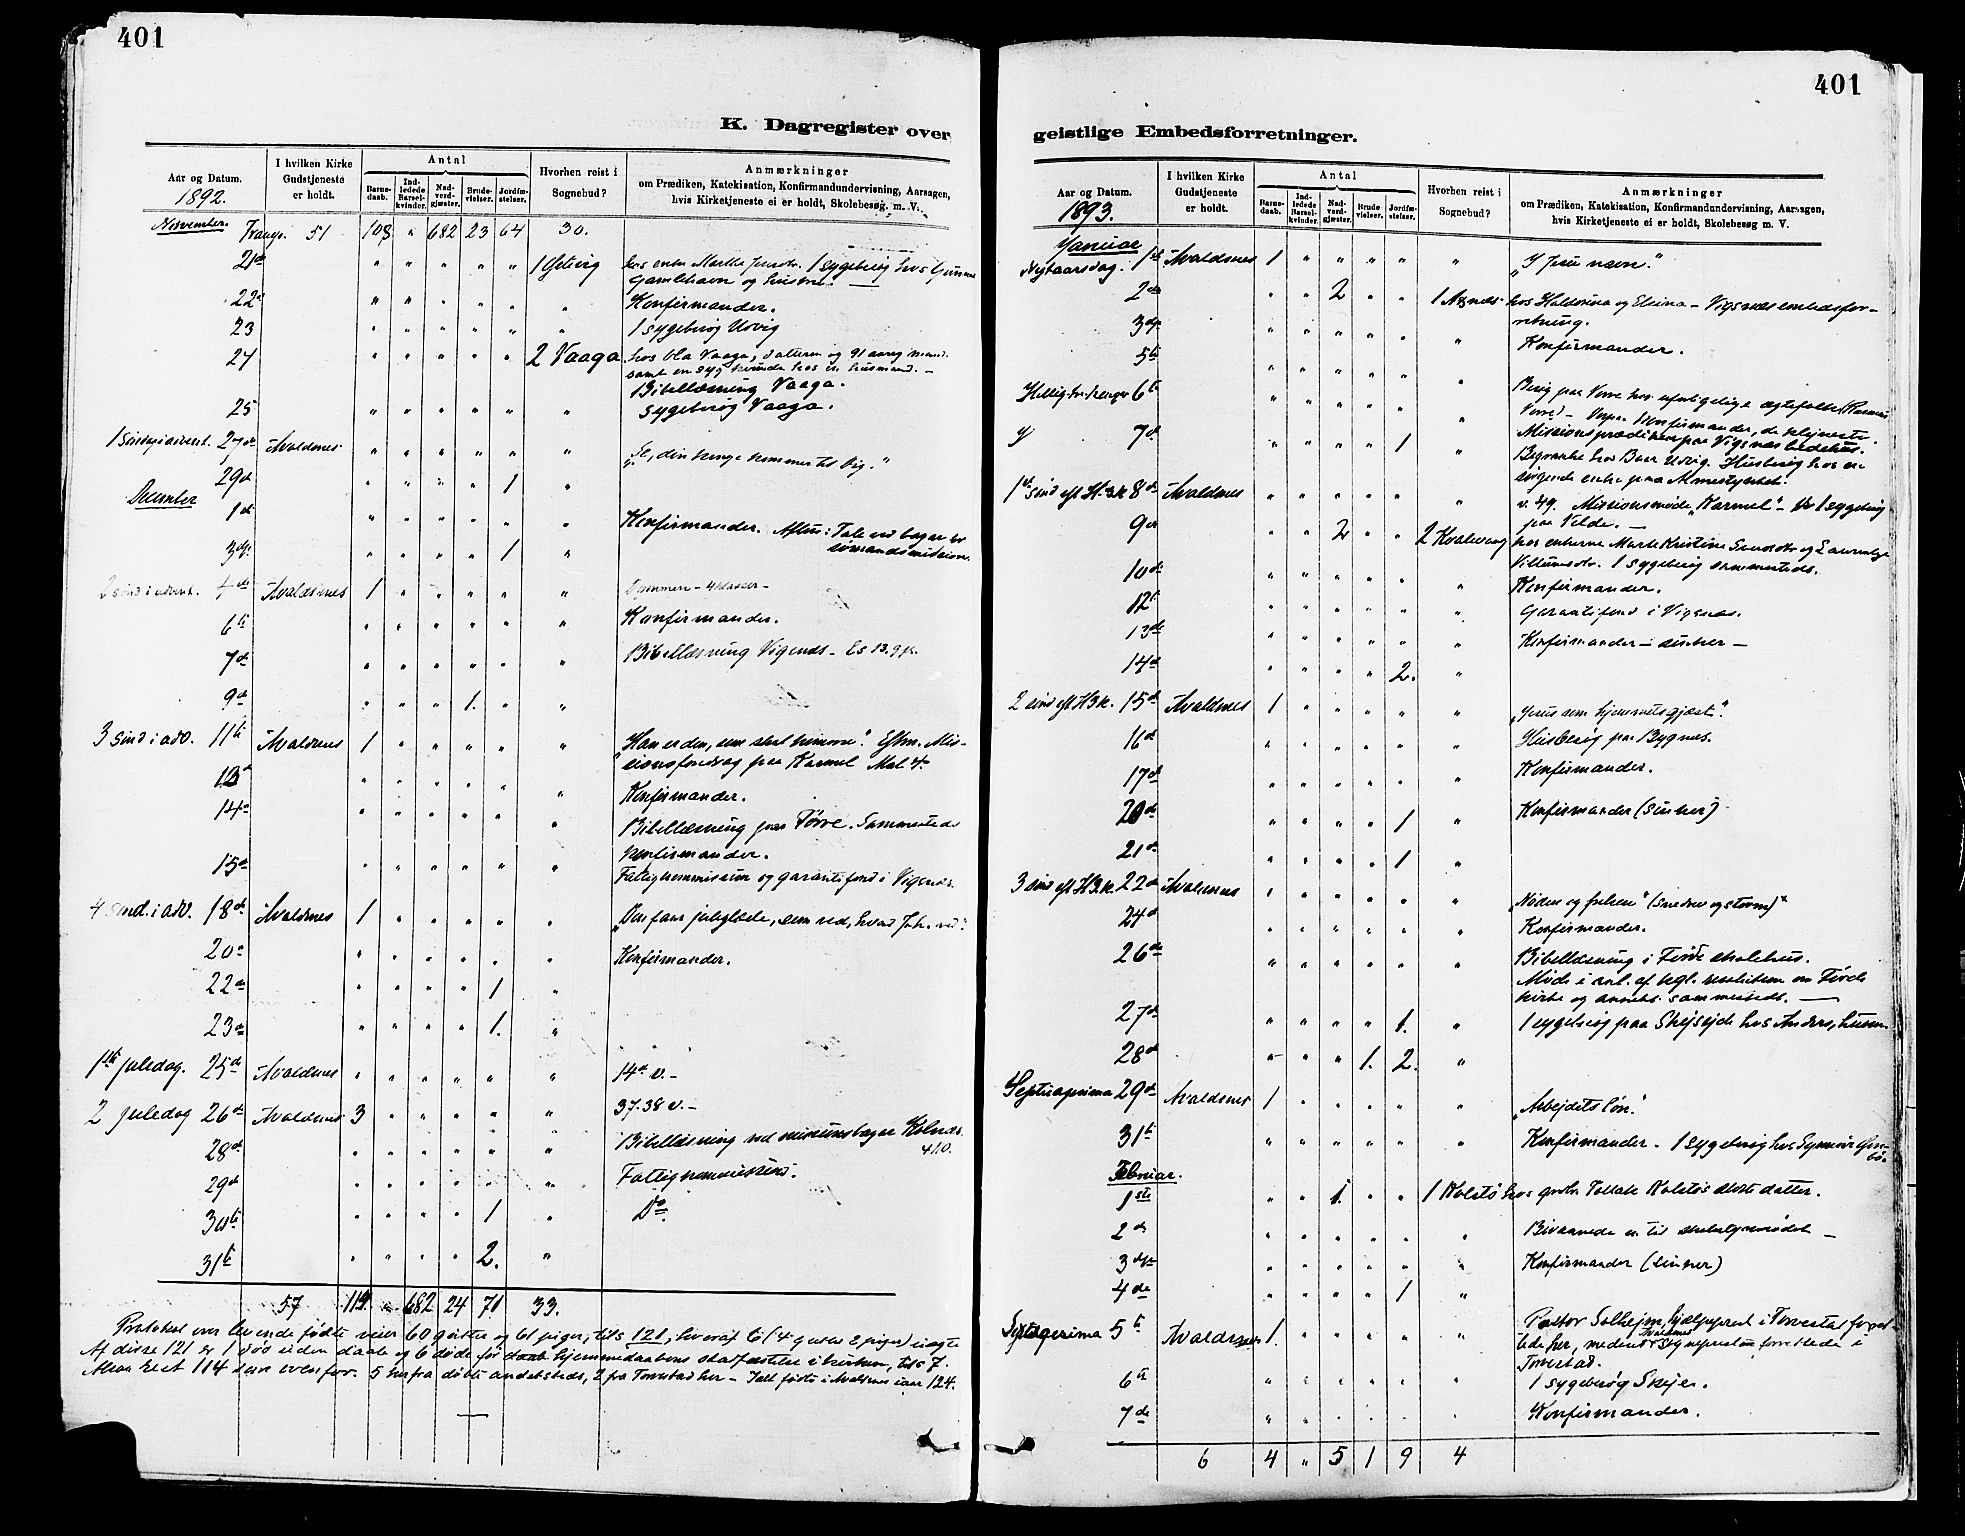 401
K. Dagregister over
Aar og Datum.
1892.
I hvilken Kirke
Gudstjeneste
er holdt.
Antal
Barne-
daab.
Ind-
ledede
Barsel-
kvinder.
Nad-
verd-
gjæster.
Brude-
vielser.
Jordfæ-
stelser.
Hvorhen reist i
Sognebud?
Anmærkninger
om Prædiken, Katekisation, Konfirmandundervisning, Aarsagen,
hvis Kirketjeneste ei er holdt, Skolebesøg, m. V.
November. Transp. 51 108 " 682 23 64 30.
21de " " " " " 1 hos enken Martha 1 sygebesøg hos
og hustru.
22 " " " " " " Konfirmander.
23 " " " " " " 1 sygebesøg Utvig
24 " " " " " 2 Vaaga hos Ola Vaaga, datteren og 91 aarig mand.
samt en syg kvinde hos en husmand. –
Bibellæsning Vaaga.
25 " " " " " " Sygebesøg Vaaga.
1 Søndag i advent. 27de Avaldsnes " " " " " " "Se, din konge kommer til dig."
29de " " " " 1 "
December
1ste " " " " " " Konfirmander. Aften: Tale ved bazar for
sømandsmission.
3dje " " " " 1 "
2 sønd i advent. 4de Avaldsnes 1 " " " " "
6te " " " " " " Konfirmander.
7de " " " " " " Bibellæsning Vigsnæs – Es 13.
9de " " " 1. " "
3 sønd i adv. 11te Avaldsnes 1 " " " " " "Han er den, som skal komme". Eftm. Mis-
sionsforedrag paa Karmel Mal 4.
13de " " " " " " Konfirmander.
14de " " " " " " Bibellæsning paa Førre. Sammesteds
konfirmander.
15de " " " " " " Fatigkommission og garantifond i Vigsnæs.
4 sønd. i adv. 18de Avaldsnes 1 " " " " " "Den faar juleglæde, som ved, hvad Joh. ved".
20de " " " " " " Konfirmander.
22de " " " " 1 "
23de " " " " 1. "
1ste juledag. 25de Avaldsnes " " " " " " 14de v. –
2 juledag 26de Avaldsnes 3 " " " " " 37.38 v. –
28de " " " " " " Bibellæsning ved missionsbazar Kolnæs.
29de " " " " " " Fattigkommission.
30te " " " " 1 " Do.
31te " " " " 2. "
57 119. " 682 24 71 33.
Protokol over levende fødte viser 60 gutter og 61 piger, tils 121, hvoraf 6 (4 gutter 2 piger) uægte
Af disse 121 er 1 død uden daab og 6 døde før hjemmedaabens stadfæstelse i kirken, tils 7.
Altsaa rest 114 som ovenfor. 5 herfra døbte andetsteds, 2 fra Torvestad her – Ialt fødte i Avaldsnes iaar 124.
401
geistlige Embedsforretninger.
Aar og Datum.
1893.
I hvilken Kirke
Gudstjeneste
er holdt.
Antal
Barne-
daab.
Ind-
ledede
Barsel-
kvinder.
Nad-
verd-
gjæster.
Brude
vielser.
Jordfæ-
stelser.
Hvorhen reist i
Sognebud?
Anmærkninger
om Prædiken, Katekisation, Konfirmandundervisning, Aarsagen,
hvis Kirketjeneste ei er holdt, Skolebesøg m. V.
Januar
Nytaarsdag. 1ste Avaldsnes 1 " " " " " "I Jesu navn."
2den " " 2 " " 1 hos og – Vigsnæs embedsfor-
retning.
3dje " " " " " " Konfirmander.
5te " " " " " "
Hellig tre konger 6te " " " " " " Besøg paa Førre hos ægtefolk (Rasmus
Førre) – Konfirmander, de klejneste.
Missionsprædiken paa Vigsnæs bedehus.
7de " " " " 1 " Begravelse hos Baar Utvig. Husbesøg hos en
sørgende enke paa
1ste sønd eft H.3K 8de Avaldsnes " " " " " " v. 49. Missionsmøde "Karmel" – 1 sygebesøg
paa Velde. –
9de " " 2 " " 2 Kvalevaag hos enkerne Marte Kristine og
1 sygebesøg sammesteds.
10de " " " " " " Konfirmander.
12te " " " " " " Garantifond i Vigsnæs.
13de " " " " " " Konfirmander –
14de " " " " 2. "
2 sønd eft H3K. 15de Avaldsnes 1 " " " " " "Jesus som hjemmets gjæst".
16de " " " " " " Husbesøg paa Bygnes.
17de " " " " " " Konfirmander.
20de " " " " 1 " Konfirmander
21de " " " " 1 "
3 sønd eft H3K. 22de Avaldsnes " " " " " " "Nøden og frelsen" (smedren og storm)"
24de " " " " " " Konfirmander.
26de " " " " " " Bibellæsning i Førde skolehus.
Møde i anl. af kgl. resolution om Førde
kirke og sammesteds. –
27de " " " " 1. " 1 sygebesøg paa Skejsejde hos Anders,
28de " " " 1. 2. "
Septuagesima 29de Avaldsnes 1 " " " " " "Arbejdets løn."
31te " " " " " " Konfirmander. 1 sygebesøg hos
Februar.
1ste " " 1. " " 1 Kolstø hos Tollak Kolstøs datter.
2de " " " " " " Bivaanede en tid skolestyremødet –
3dje " " " " " " Konfirmander
4de " " " " 1 "
5te Avaldsnes 1 " " " " " Pastor Solheim, hjælpeprest i Torvestad forret-
tede her, medens Avaldsnes Sogneprest forrettede i
Torvestad.
6te " " " " " " 1 sygebesøg Skejer.
7de " " " " " " Konfirmander.
6 4 " 5 1 9 4